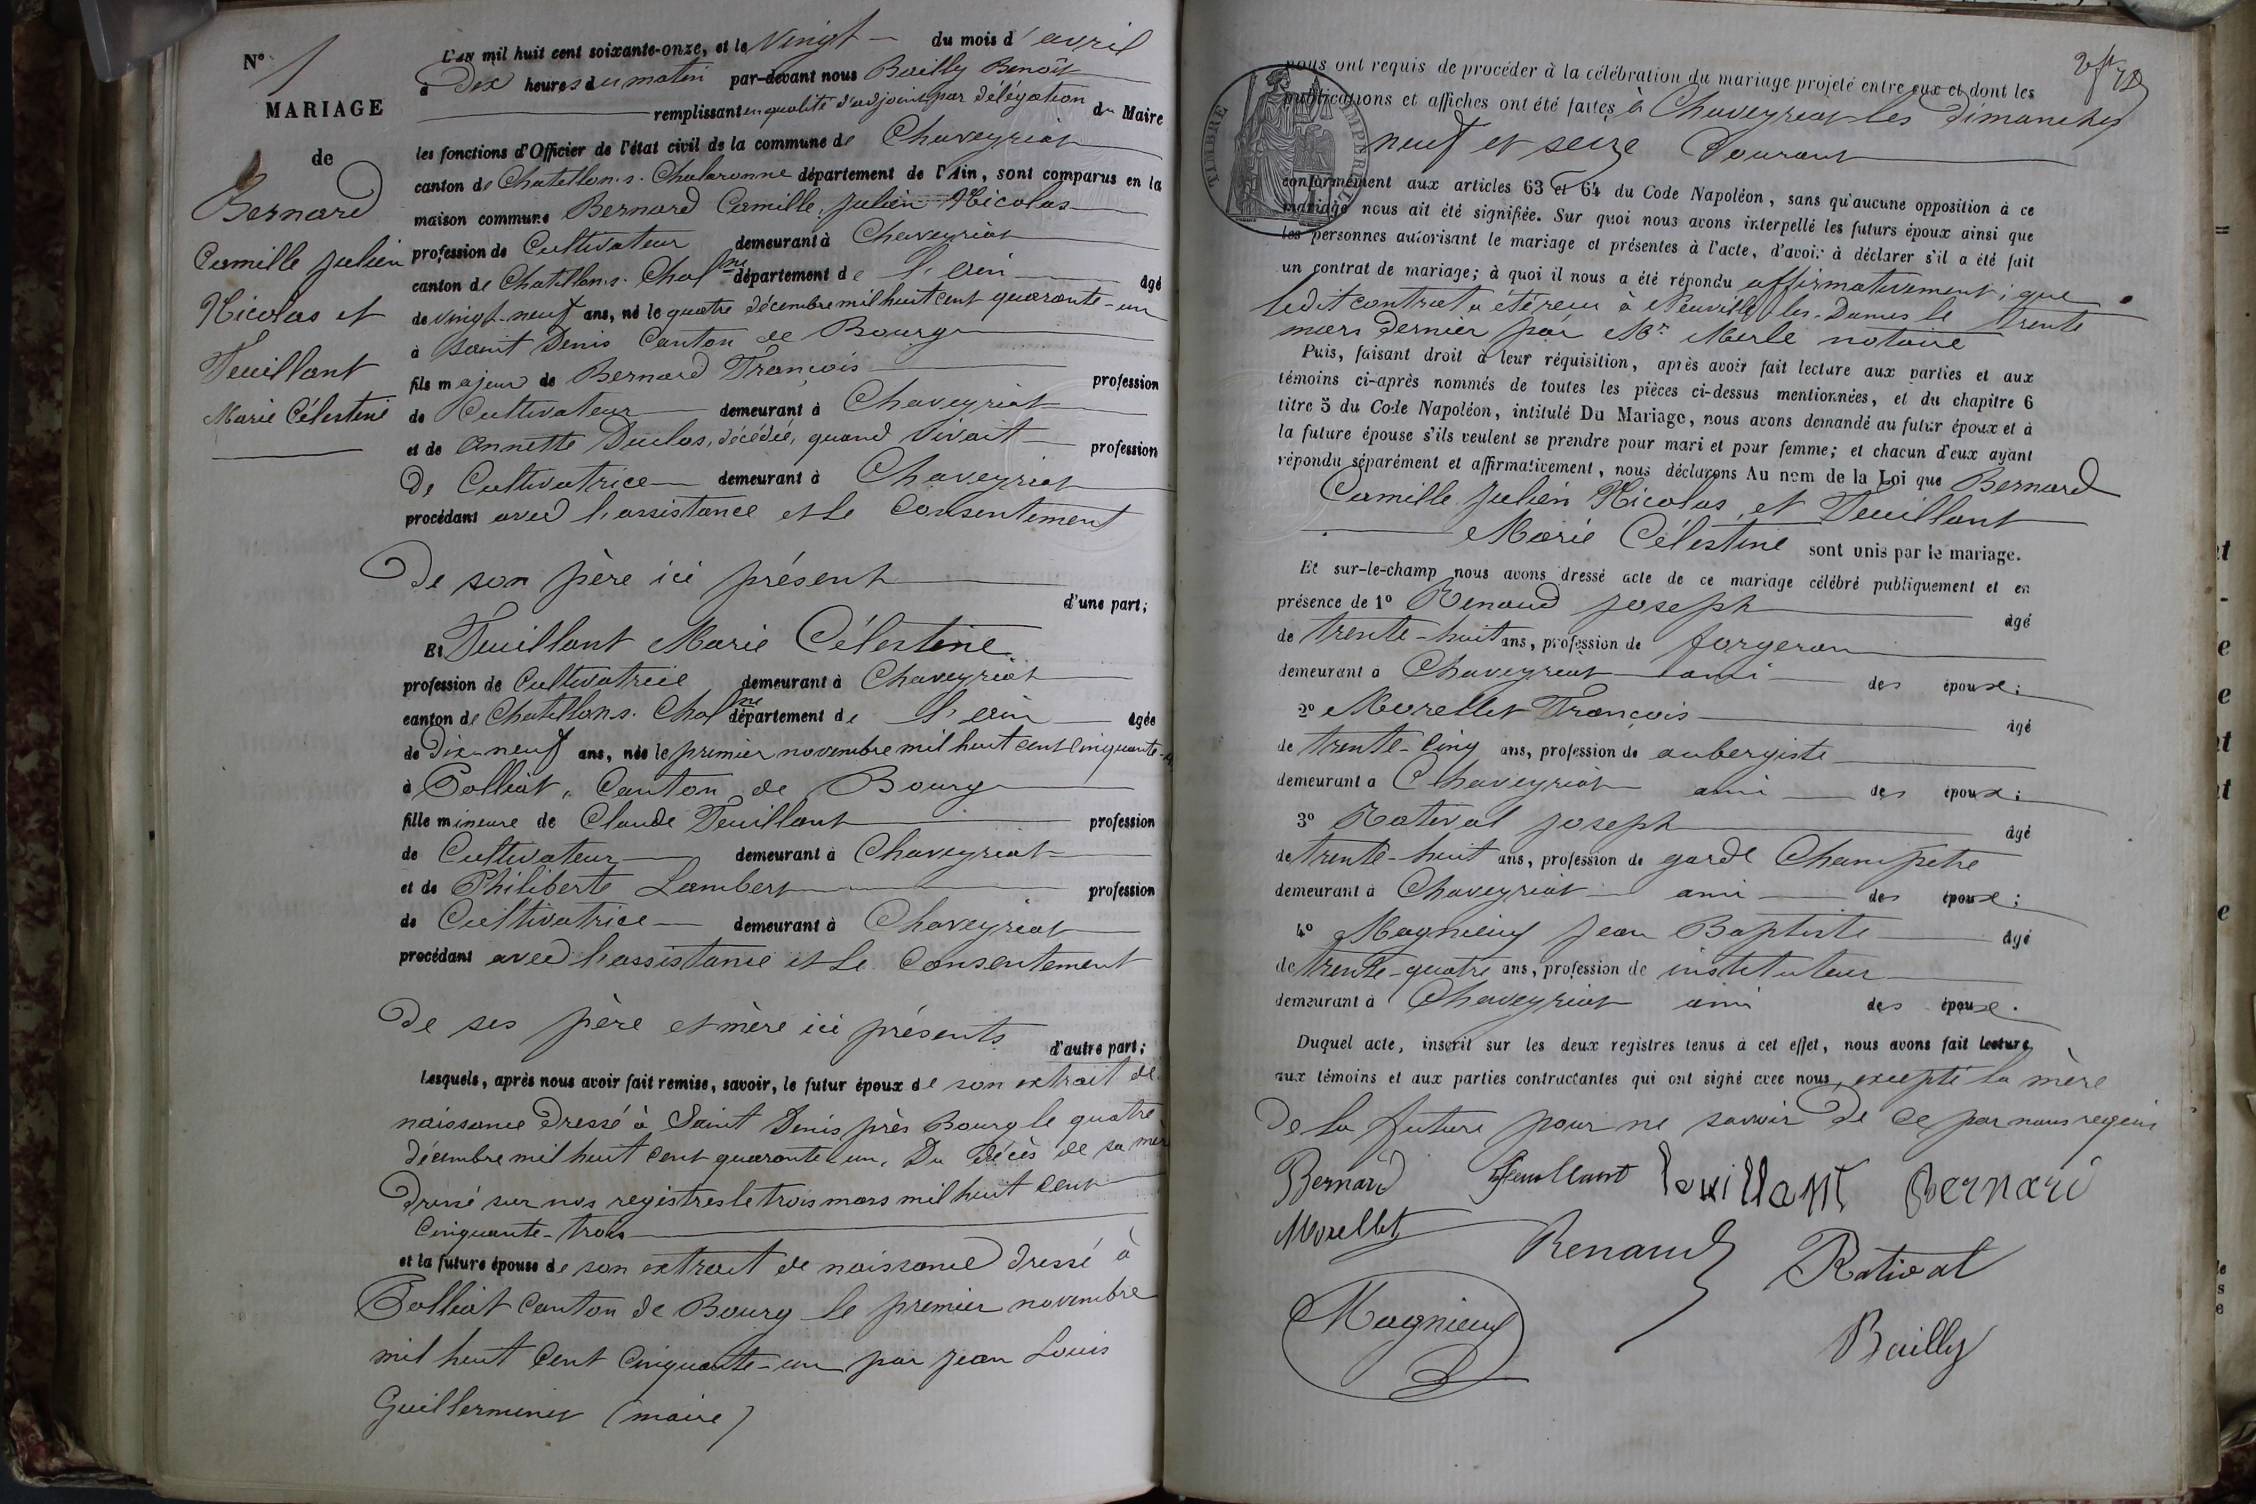 N° 1
MARIAGE
de
Bernard
Camille Julien
Nicolas et
Feuillant
Marie Célestine
L'an mil huit cent soixante-onze, et le Vingt du mois d'avril
à Dix heures du matin par-devant nous Bailly Benoît
remplissant en qualité d'adjoint par délégation du Maire
les fonctions d'Officier de l'état civil de la commune de Chaveyriat
canton de Chatillon-s-Chalaronne département de l'Ain, sont comparus en la
maison commune Bernard Camille, Julien Nicolas
profession de Cultivateur demeurant à Chaveyriat
canton de Chatillon-s-Chalne département de l'ain âgé
de vingt-neuf ans, né le quatre décembre mil huit cent quarante-un
à Saint Denis Canton de Bourg
fils majeur de Bernard François profession
de Cultivateur demeurant à Chaveyriat
et de Annette Duclos, décédée, quand vivait profession
De Cultivatrice demeurant à Chaveyriat
procédant avec l'assistance et le Consentement
De son père ici présent
d'une part;
Et Feuillant Marie Célestine
profession de Cultivatrice demeurant à Chaveyriat
canton de Chatillon-s-Chalne département de l'ain âgée
de Dix-neuf ans, née le premier novembre mil huit cent cinquante-un
à Polliat, Canton de Bourg
fille mineure de Claude Feuillant profession
de Cultivateur demeurant à Chaveyriat
et de Philiberte Lambert profession
de Cultivatrice demeurant à Chaveyriat
procédant avec l'assistance et le Consentement
De ses père et mère ici présents
d'autre part;
Lesquels, après nous avoir fait remise, savoir, le futur époux de son extrait de
naissance Dressé à Saint Denis près Bourg le quatre
décembre mil huit cent quarante-un, Du Décès de sa mère
Dressé sur nos registres le trois mars mil huit cent
cinquante-trois
et la future épouse de son extrait de naissance dressé à
Polliat Canton de Bourg le premier novembre
mil huit cent cinquante-un par Jean Louis
Guillerminet (maire)
TIMBRE IMPERIAL
nous ont requis de procéder à la célébration du mariage projeté entre eux et dont les
publications et affiches ont été faites à Chaveyriat les Dimanches
neuf et seize Courant
conformément aux articles 63 et 64 du Code Napoléon, sans qu'aucune opposition à ce
mariage nous ait été signifiée. Sur quoi nous avons interpellé les futurs époux ainsi que
les personnes autorisant le mariage et présentes à l'acte, d'avoir à déclarer s'il a été fait
un contrat de mariage; à quoi il nous a été répondu affirmativement; que
ledit contrat a été reçu à Neuville-les-Dames le trente
mars Dernier par Mr Merle notaire
Puis, faisant droit à leur réquisition, après avoir fait lecture aux parties et aux
témoins ci-après nommés de toutes les pièces ci-dessus mentionnées, et du chapitre 6
titre 5 du Code Napoléon, intitulé Du Mariage, nous avons demandé au futur époux et à
la future épouse s'ils veulent se prendre pour mari et pour femme; et chacun d'eux ayant
répondu séparément et affirmativement, nous déclarons Au nom de la Loi que Bernard
Camille Julien Nicolas, et Feuillant
Marie Célestine sont unis par le mariage.
Et sur-le-champ nous avons dressé acte de ce mariage célébré publiquement et en
présence de 1° Renaud Joseph âgé
de trente-huit ans, profession de forgeron
demeurant à Chaveyriat ami des époux;
2° Morellet François âgé
de trente-cinq ans, profession de aubergiste
demeurant à Chaveyriat ami des époux;
3° Rativat Joseph âgé
de trente-huit ans, profession de garde Champetre
demeurant à Chaveyriat ami des époux;
4° Magnieux Jean Baptiste âgé
de trente-quatre ans, profession de instituteur
demeurant à Chaveyriat ami des époux.
Duquel acte, inscrit sur les deux registres tenus à cet effet, nous avons fait lecture
aux témoins et aux parties contractantes qui ont signé avec nous, excepté la mère
De la future pour ne savoir De ce par nous requise
Bernard Feuillant feuillant Bernard
Morellet Renaud Rativat
Magnieux
Bailly